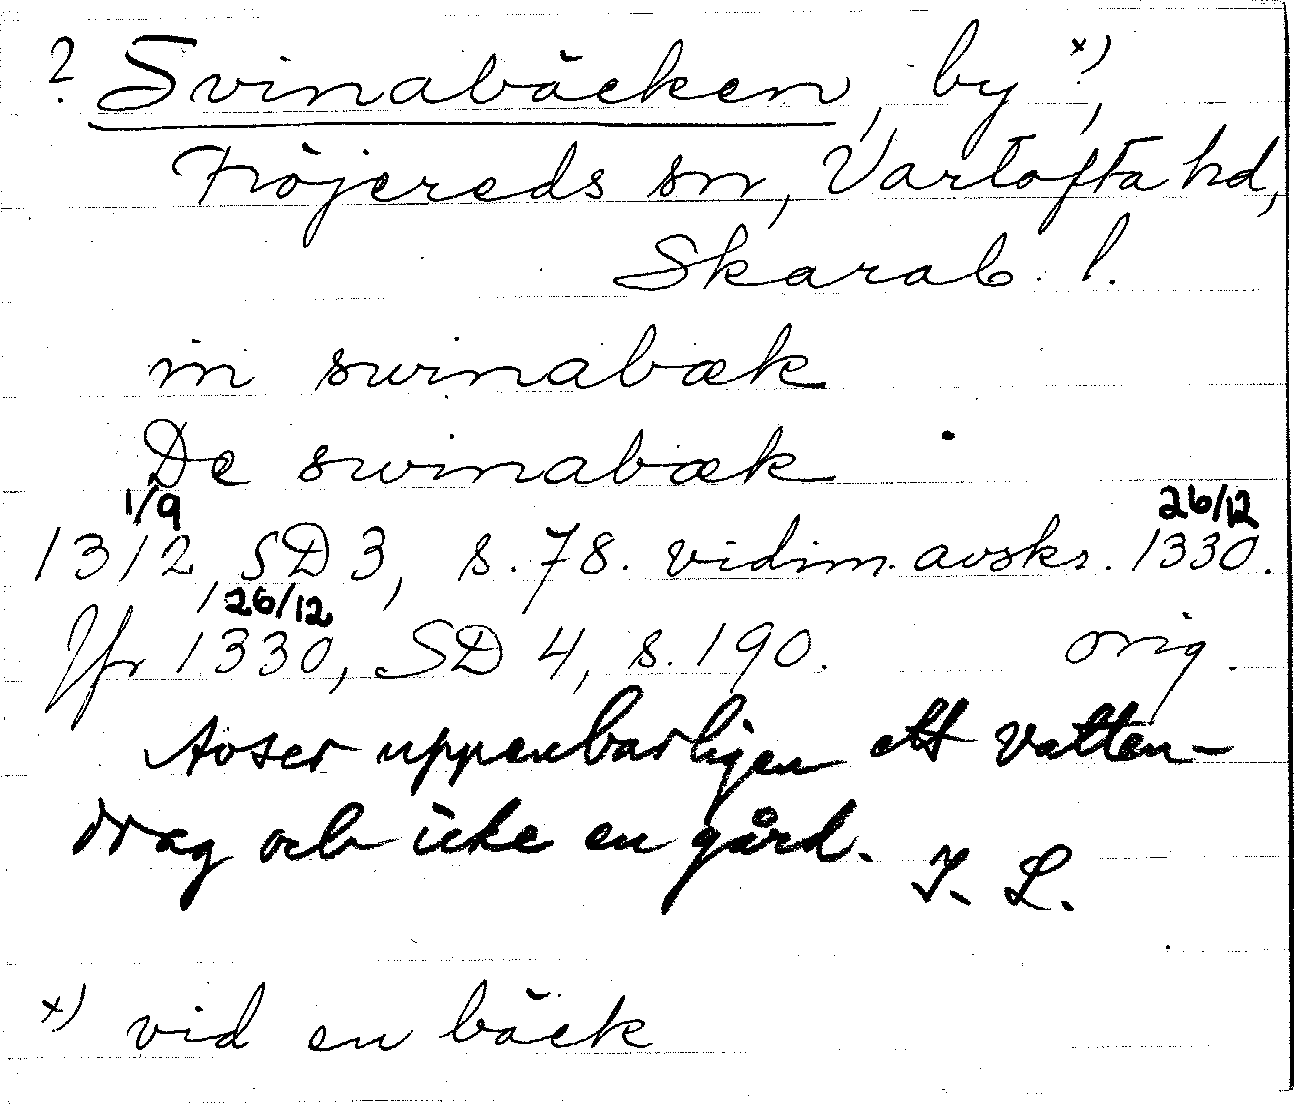 ? Svinabäcken, by x),
Fröjereds sn, Vartofta hd,
Skarab. l.
in swinabæk
De swinabæk
1/9 26/12
1312, SD 3, s. 78. vidim. avskr. 1330.
26/12
Jfr 1330, SD 4, s. 190. orig.
Avser uppenbarligen ett vatten-
drag och icke en gård. I. L.
x) vid en bäck